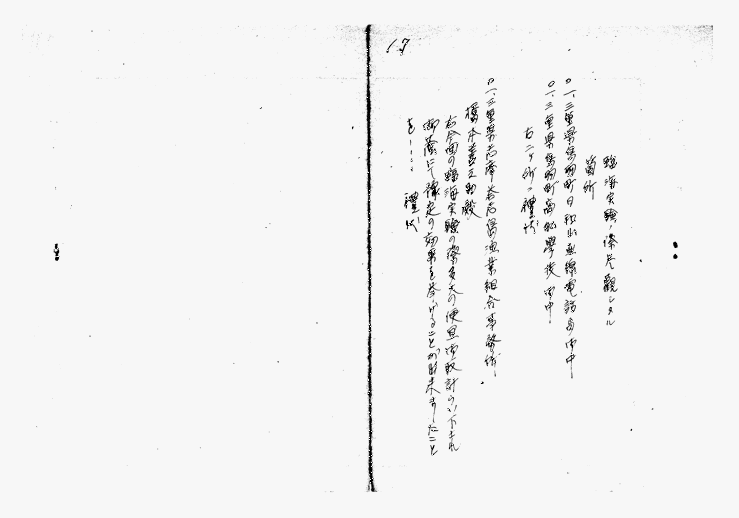 17
臨海実験ノ際見観シタル
箇所
〇一、三重県鳥羽町日和山無線電話局御中
〇一、三重県鳥羽町商船學校御中
右二ヶ所ハ禮状
〇一、三重県志摩答志島漁業組合事務所
橋本善之助殿
右今回の臨海実験の際多大の便宜御取計らい下され
御蔭にて豫定の効果を挙げることが出来ましたこと
を……禮状